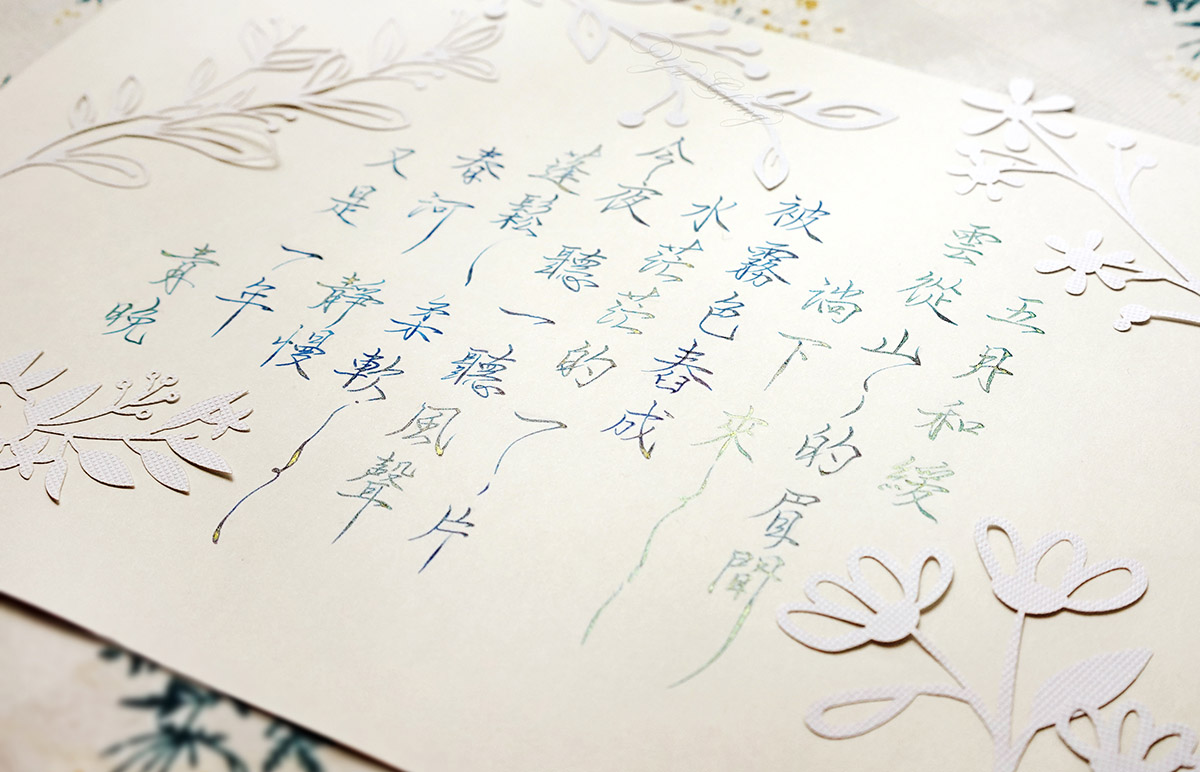 五月和緩
雲從山的眉間
淌下來
被霧色舂成
水茫茫的一片
今夜聽一聽風聲
蓬鬆、柔軟、
春河靜慢
又是一年
青晚